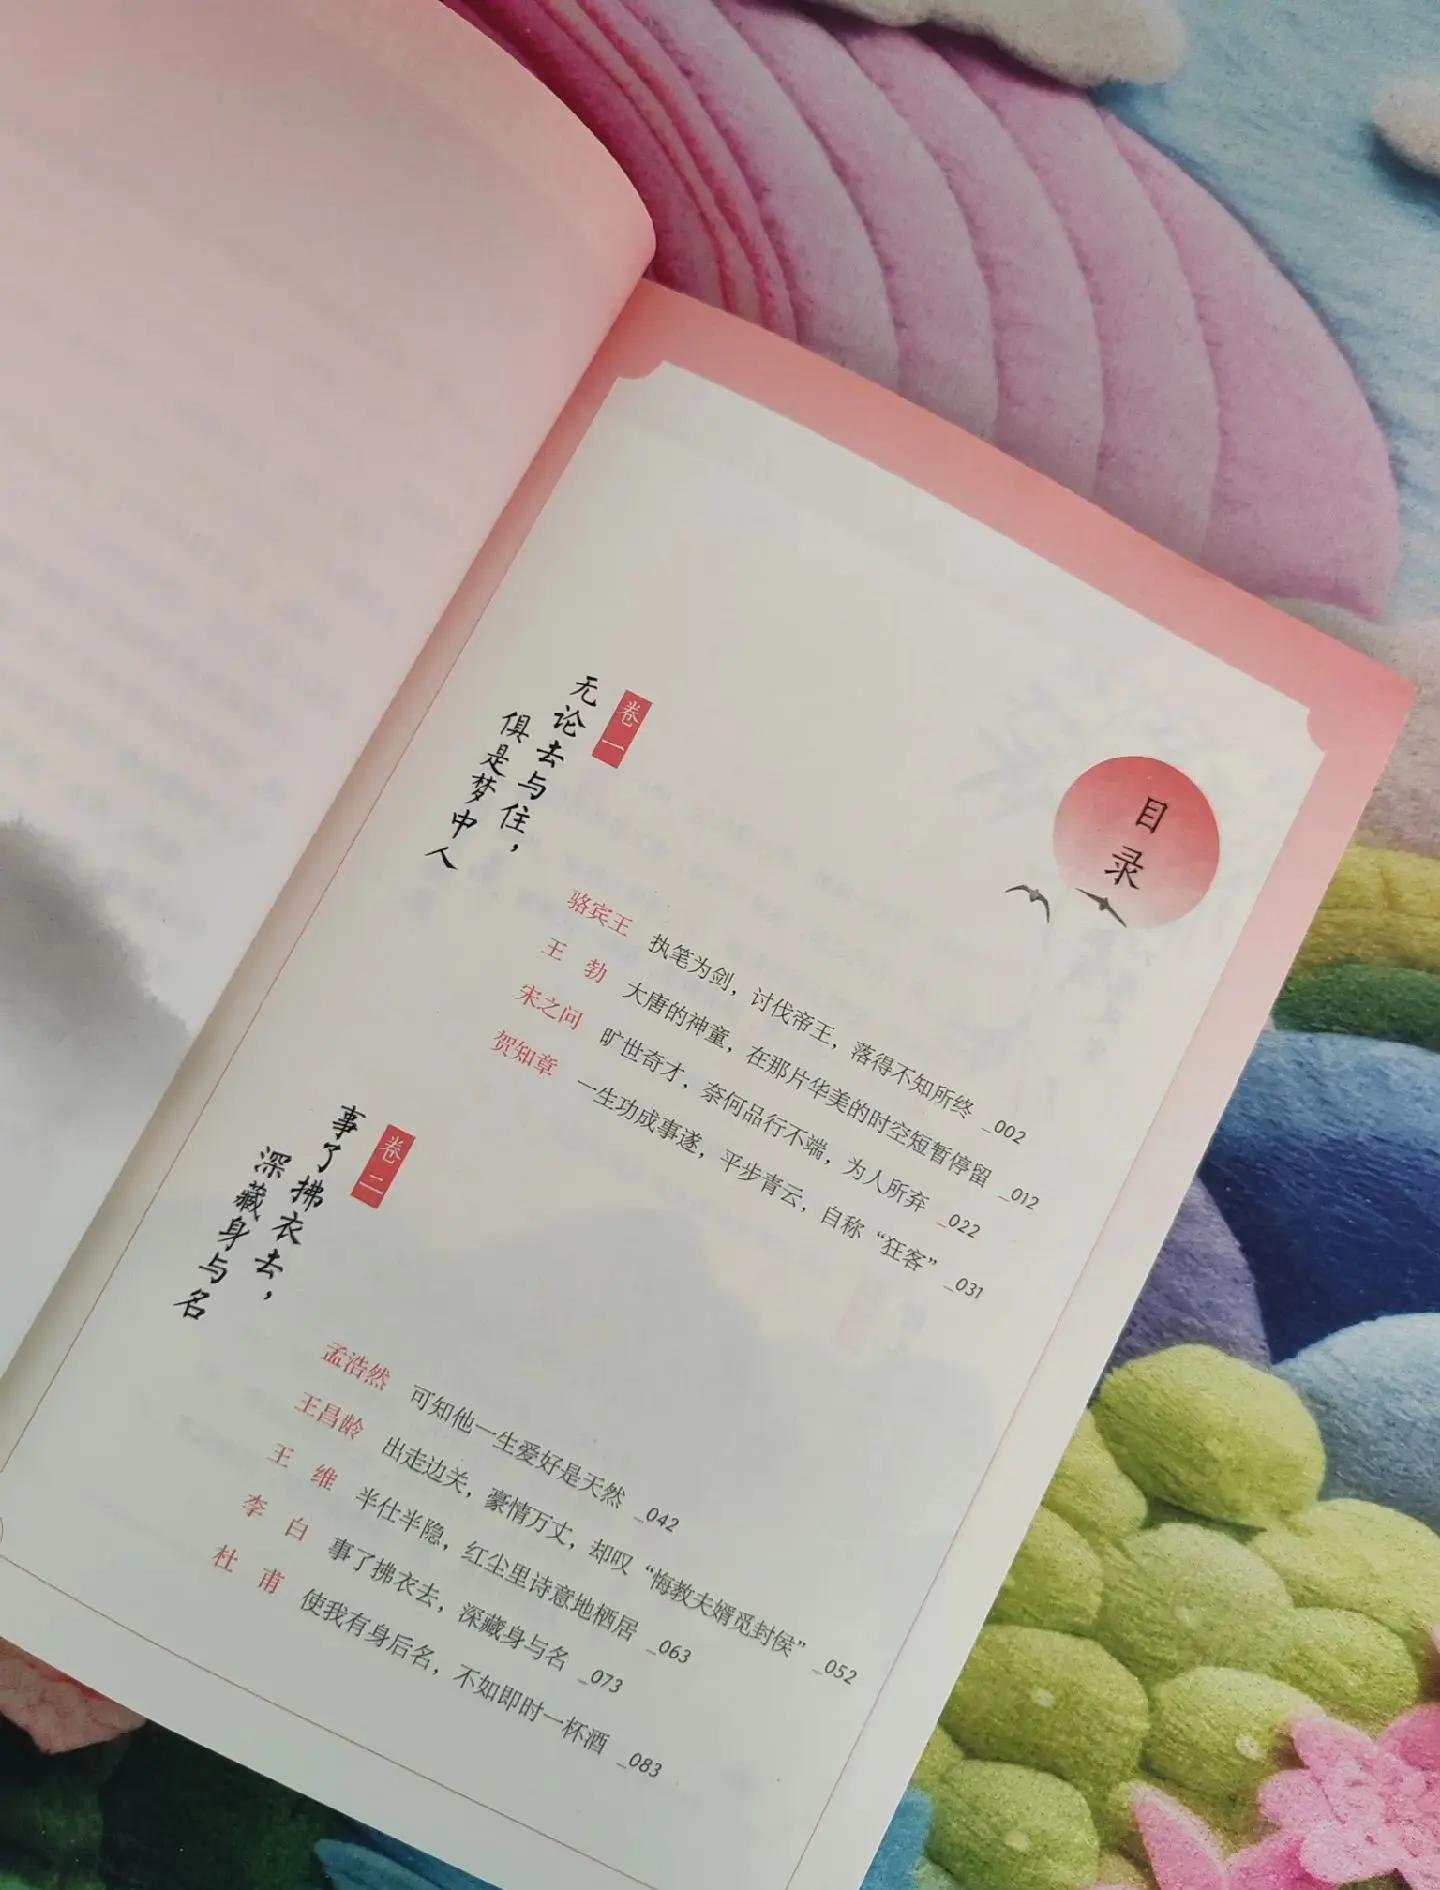 目录
卷一
无论去与住，
俱是梦中人
骆宾王 执笔为剑，讨伐帝王，落得不知所终 _002
王 勃 大唐的神童，在那片华美的时空短暂停留 _012
宋之问 旷世奇才，奈何品行不端，为人所弃 _022
贺知章 一生功成事遂，平步青云，自称“狂客” _031
卷二
事了拂衣去，
深藏身与名
孟浩然 可知他一生爱好是天然 _042
王昌龄 出走边关，豪情万丈，却叹“悔教夫婿觅封侯” _052
王 维 半仕半隐，红尘里诗意地栖居 _063
李 白 事了拂衣去，深藏身与名 _073
杜 甫 使我有身后名，不如即时一杯酒 _083